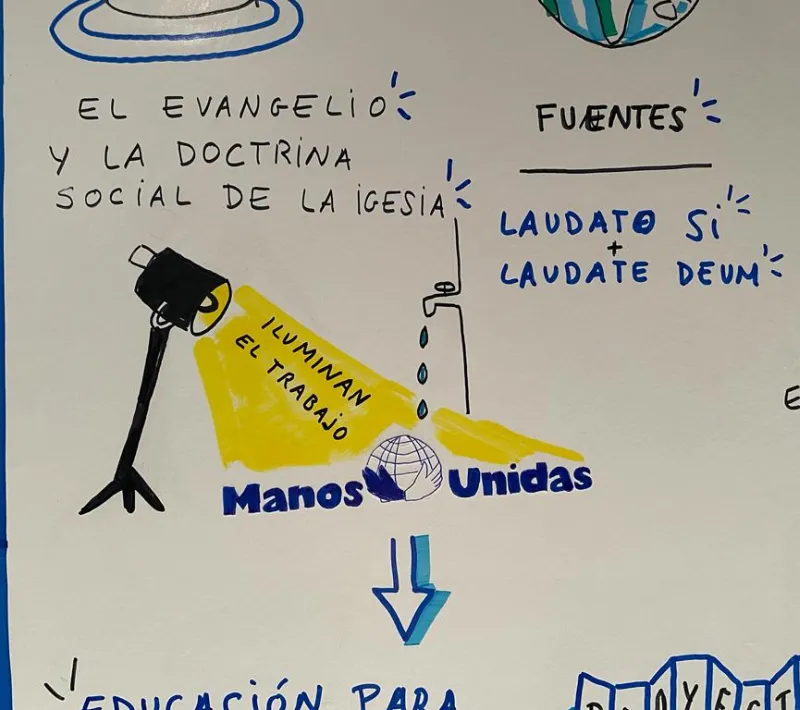 EL EVANGELIO
Y LA DOCTRINA
SOCIAL DE LA IGESIA
FUENTES
LAUDATO SI
+
LAUDATE DEUM
ILUMINAN
EL TRABAJO
Manos Unidas
EDUCACIÓN PARA